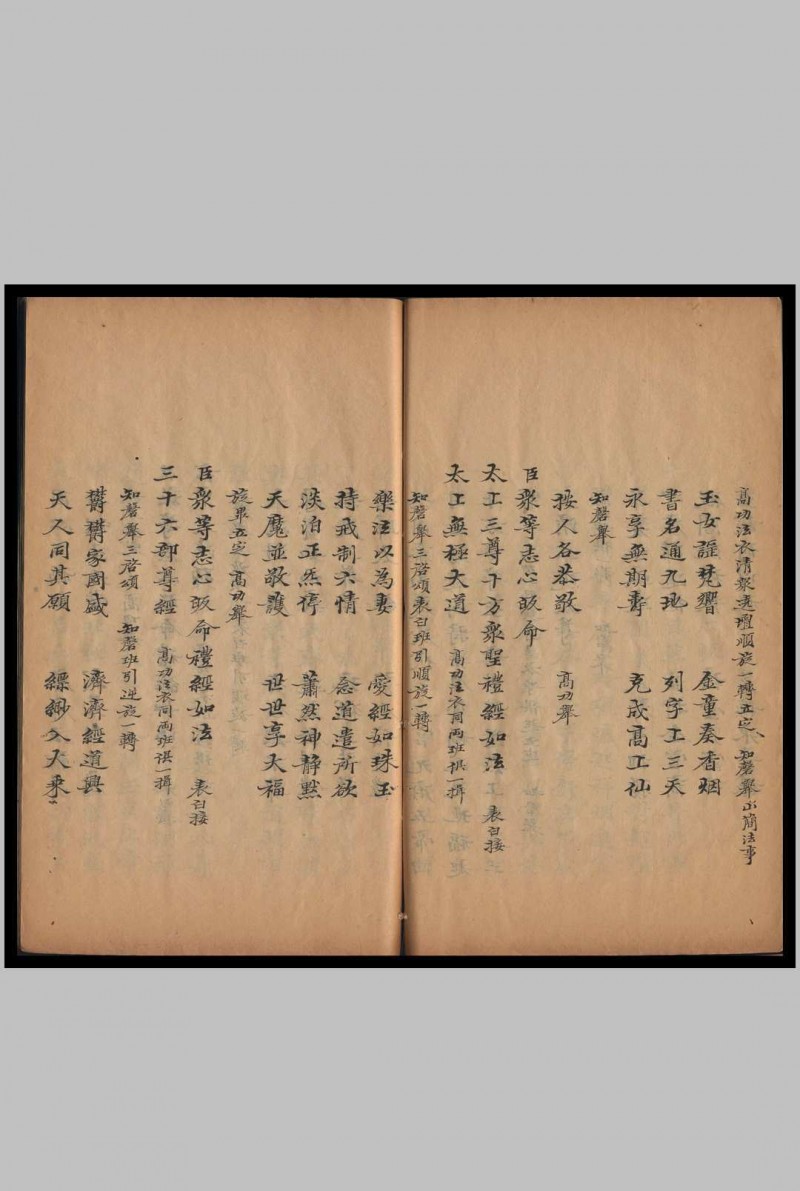 高功法衣清眾遶壇順旋一轉立定、知磬舉小簡法事
玉女誰梵響 金童奏香烟
書名通九地 列字工三天
永享無期壽 克成高工仙
知磬舉
按人各恭敬 高功舉
臣眾等志心皈命
太工三尊十方眾聖禮經如法 表白接
太工無極大道 高功法衣同兩班供一揖
知磬舉三啓頌表白班引順旋一轉
樂法以為妻 愛經如珠玉
持戒制六情 念道遣所欲
淡泊正炁停 蕭然神静默
天魔並敬護 世世享大福
旋畢立定高功舉
臣眾等志心皈命禮經如法 表白接
三十六部尊經 高功法衣同兩班供一揖
知磬舉三啓頌 知磬班引逆旋一轉
欝欝家國盛 濟濟經道興
天人同其願 縹緲入大乘